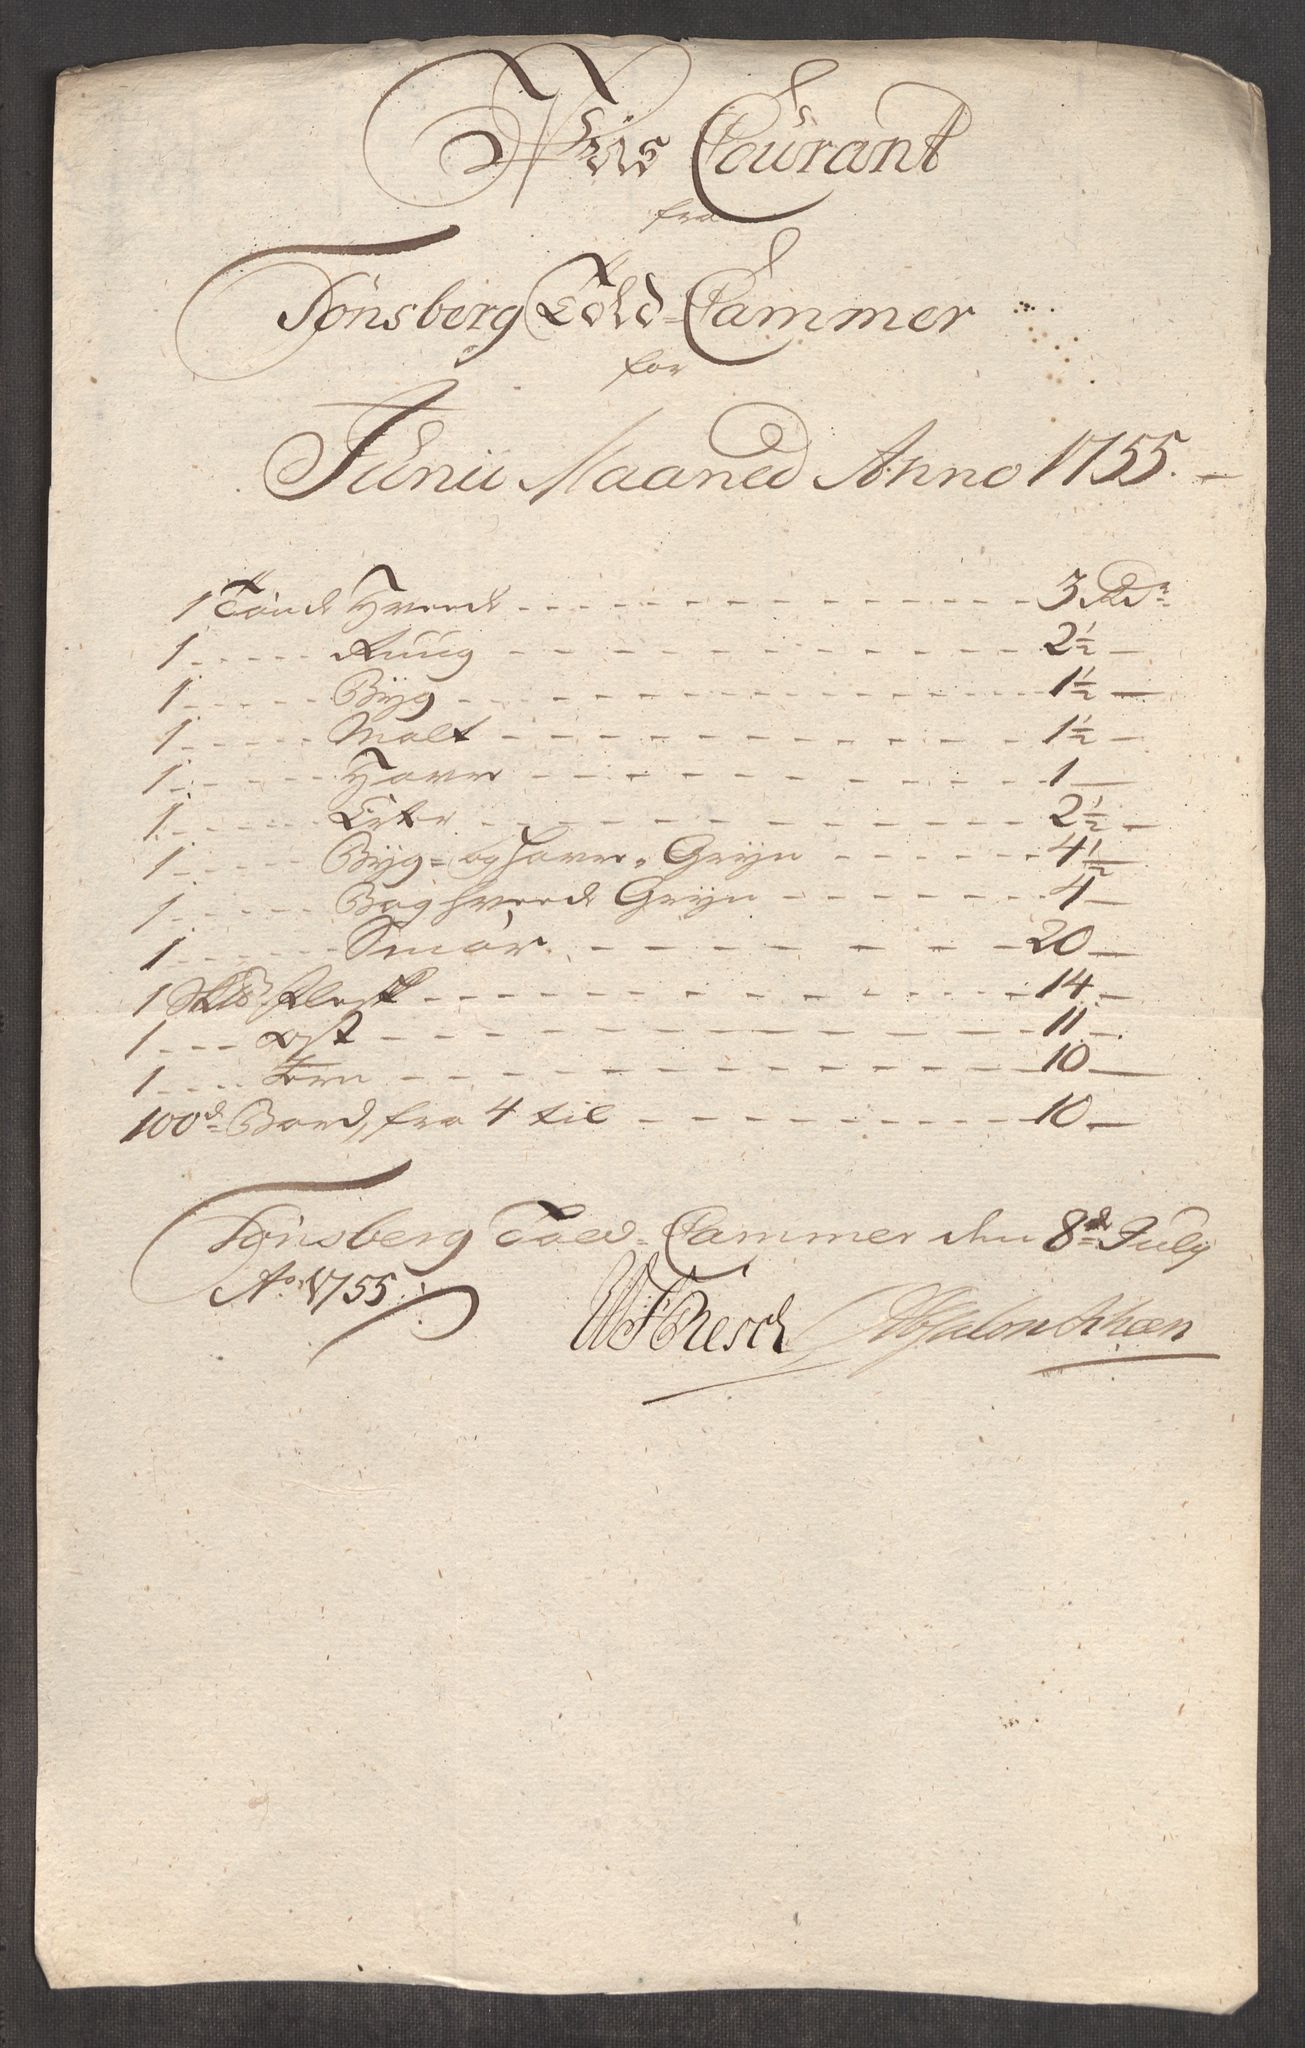 Priis Courant
fra
Tønsberg Told-Cammer
for
Junii Maaned Anno 1755.
1 Tønde Hvede - - - 3 Rdr
1 - - - Ruug - - - 2½
1 - - - Byg - - - 1½
1 - - - Malt - - - 1½
1 - - - Havre - - - 1
1 - - - Erter - - - 2½
1 - - - Byg- og Havre-Gryn - - - 4½
1 - - - Boghvede Gryn - - - 4
1 - - - Smør - - - 20
1 Sk℔ Flesk - - - 14
1 - - - Ost - - - 11
1 - - - - - - 10
100d Bord, fra 4 til - - - 10
Tønsberg Told-Cammer den 8d July
Ao 1755.
Resch Absalon